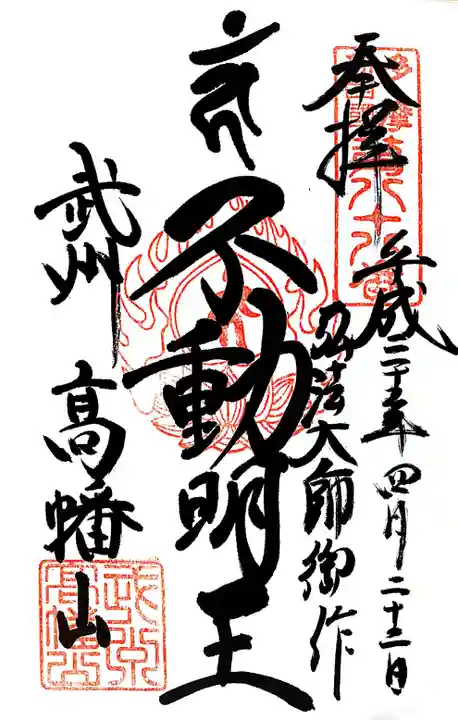 奉拝
平成二十五年四月二十二日
弘法大師御作
不動明王
武州
高幡山